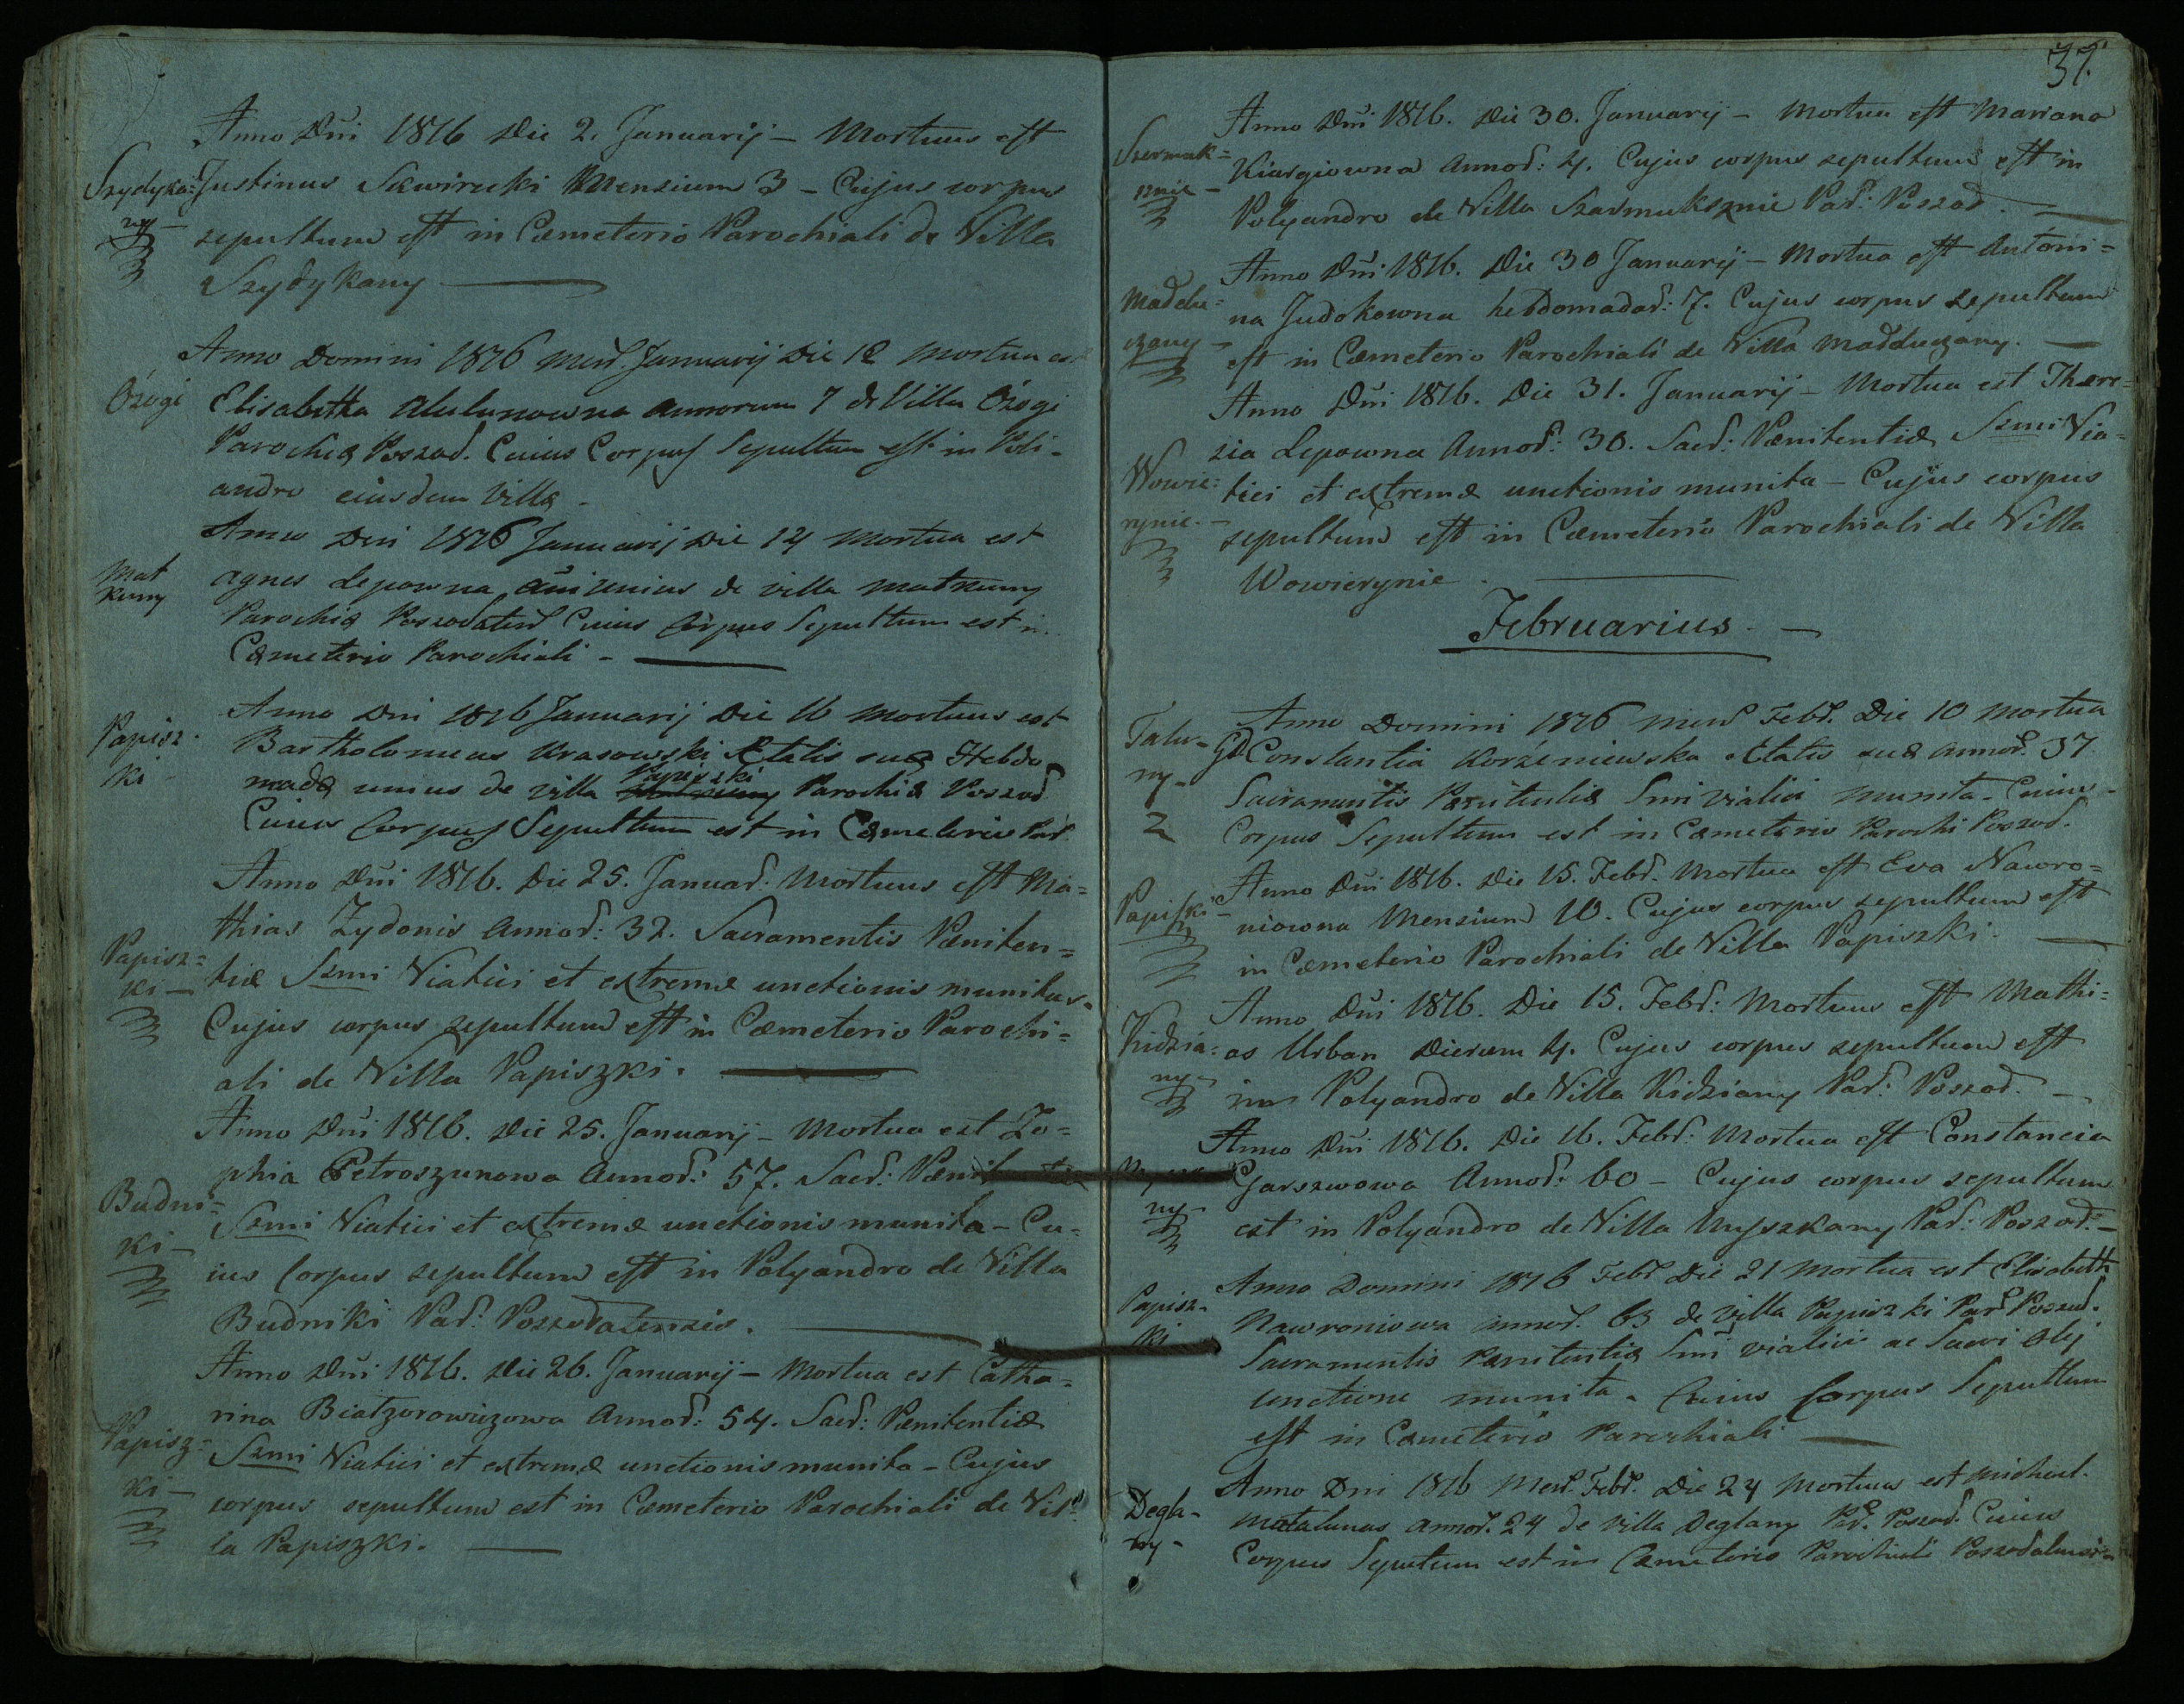 Anno Dni 1816 Die 2. Januarij – Mortuus est
Szydyka= Justinus Skwirecki Mensium 3 – Cujus corpus
ny
sepultum est in Cæmeterio Parochiali de Villa
Szydykany
Anno Domini 1816 Mens. Januarij Die 12 Mortua est
Ożogi
Elisabetha annorum 7 de Villa Ożogi
Parochiæ Poszad. Cuius Corpus Sepultum est in Poli-
andro eiusdem Villæ -
Anno Dni 1816 Januarij Die 14 Mortua est
Mat
kuny
Agnes Lepowna de villa Matkuny
Parochiæ Cuius Corpus Sepultum est in
Cæmeterio Parochiali -
Anno Dni 1816 Januarij Die 16 Mortuus est
Papisz-
ki
Bartholomeus Krasowski Ætatis suæ Hebdo
madæ unius de villa Papiszki Parochiæ Poszad
Cuius Corpus Sepultum est in Cæmeterio Par.
Anno Dni 1816. Die 25. Januar: Mortuus est Ma=
thias Zydonis Annor: 32. Sacramentis Pæniten=
Papisz=
ki –
tiæ Szmi Viatici et extremæ unctionis munitus.
Cujus corpus sepultum est in Cæmeterio Parochi=
ali de Villa Papiszki.
Anno Dni 1816. Die 25. Januarij – Mortua est Zo=
phia Petroszunowa Annor: 57. Sacr:
Budni=
ki –
Szmi Viatici et extremæ unctionis munita – Cu=
ius Corpus sepultum est in Polyandro de Villa
Budniki Par: Poszadatensis.
Anno Dni 1816. Die 26. Januarij – Mortua est Catha=
rina Białzorowiczowa Annor: 54. Sacr: Pænitentiæ
Papisz=
ki –
Szmi Viatici et extremæ unctionis munita – Cujus
corpus sepultum est in Cæmeterio Parochiali de Vil=
la Papiszki.
37.
Anno Dni 1816. Die 30. Januarij – Mortua est Mariana
Szermuk=
sznie –
Kiurgiowna Annor: 4. Cujus corpus sepultum est in
Polyandro de Villa Szarmuksznie Par: Poszad.
Anno Dni 1816. Die 30 Januarij – Mortua est Antoni=
Maddu=
czany –
na Judokowna hebdomadar: 7. Cujus corpus sepultum
est in Cæmeterio Parochiali de Villa Madduczany.
Anno Dni 1816. Die 31. Januarij – Mortua est There=
zia Lepowna Annor: 30. Sacr: Pænitentiæ Szmi Via=
Wowie=
rynie. –
tici et extremæ unctionis munita – Cujus corpus
sepultum est in Cæmeterio Parochiali de Villa
Wowierynie.
Februarius.
Anno Domini 1816 Mens Febr. Die 10 Mortua
Talu-
ny –
2
GD Constantia Korzeniewska Ætatis suæ Annor. 37
Sacramentis Pænitentiæ Smi Viatici munita – Cuius
Corpus Sepultum est in Cæmeterio Parochi Poszad.
Anno Dni 1816. Die 15. Febr. Mortua est Eva Nawro=
Papiszki –
niowna Mensium 10. Cujus corpus sepultum est
in Cæmeterio Parochiali de Villa Papiszki.
Anno Dni 1816. Die 15. Febr: Mortuus est Mathi=
Kidzia=
ny –
as Urban Dierum 4. Cujus corpus sepultum est
in Polyandro de Villa Kidziany Par: Poszad.
Anno Dni 1816. Die 16. Febr: Mortua est Constancia
ny –
Garszwowa Annor: 60 – Cujus corpus sepultum
est in Polyandro de Villa Myszkany Par: Poszad. –
Anno Domini 1816 Febr Die 21 Mortua est Elisabeth
Papisz-
ki
Nawroniowa annor. 63 de villa Papiszki Par Poszad.
Sacramentis Pænitentiæ Smi viatici ac Sacri Olej
unctione munita – Cuius Corpus Sepultum
est in Cæmeterio Parochiali
Anno Dni 1816 Mens. Febr. Die 24 Mortuus est Michael
Degla-
ny –
Matalunas Annor. 24 de villa Deglany Par. Poszad. Cuius
Corpus Sepultum est in Cæmeterio Parochiali